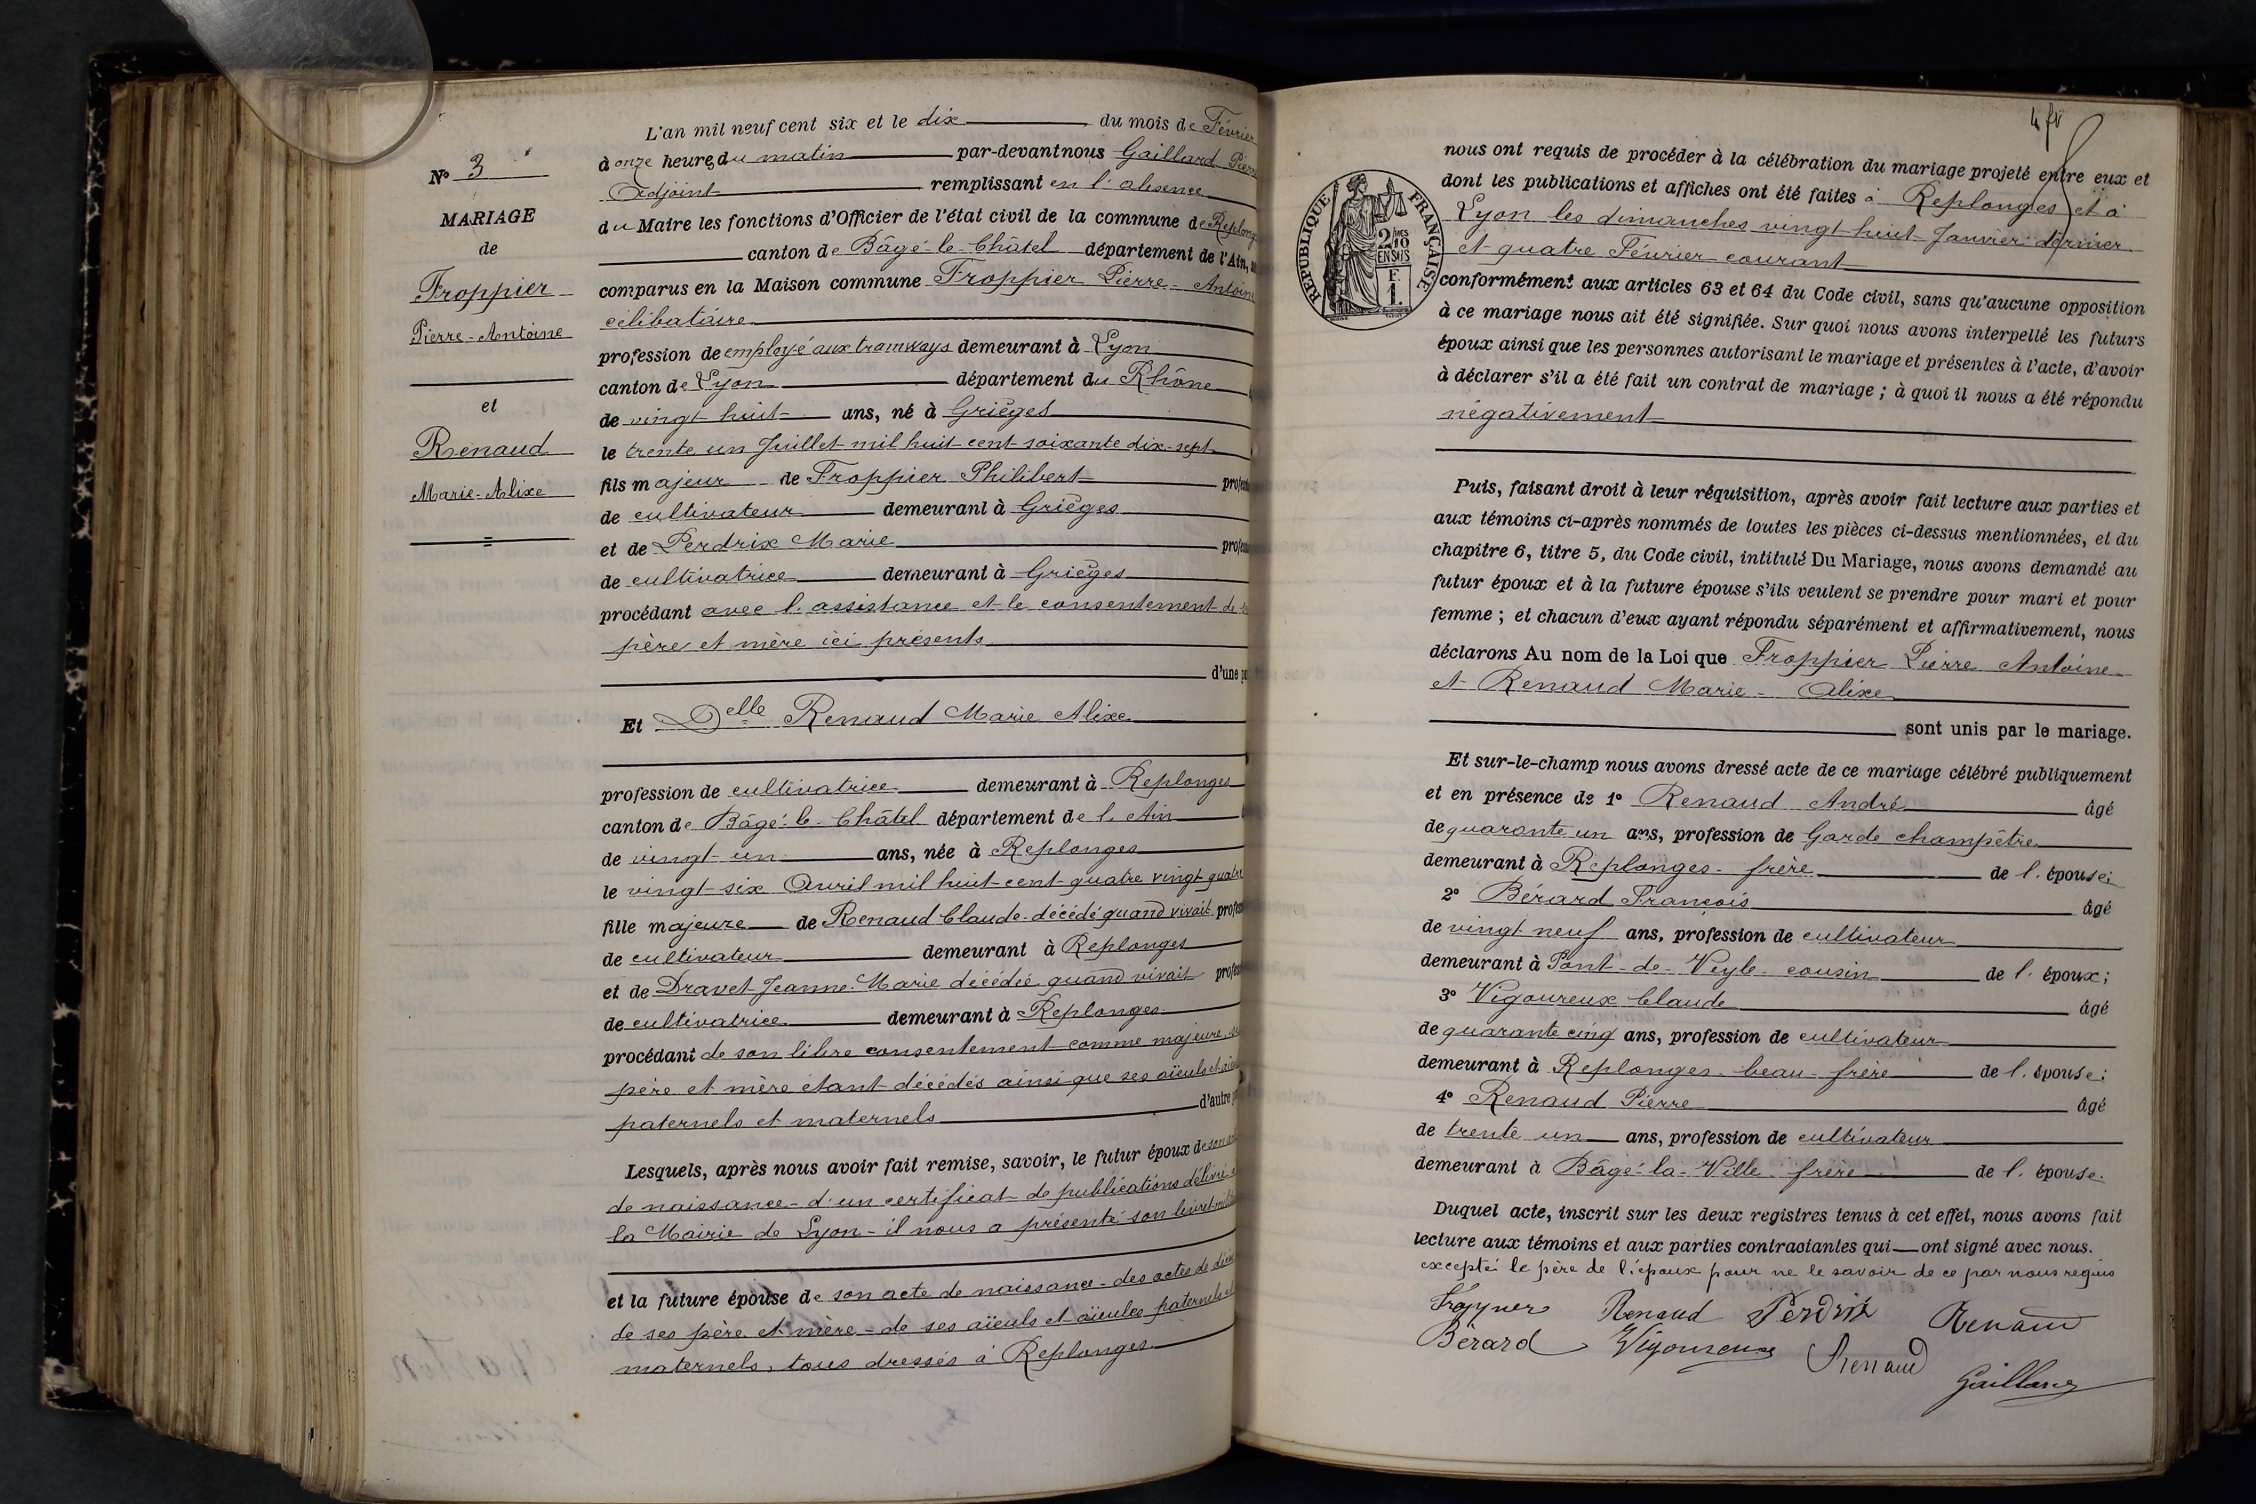 L'an mil neuf cent six et le dix du mois de Février
à onze heures du matin par-devant nous Gaillard Pierre
Adjoint remplissant en l'absence
du Maire les fonctions d'Officier de l'état civil de la commune de Replonges
canton de Bâgé-le-Châtel département de l'Ain,
comparus en la Maison commune Froppier Pierre-Antoine
célibataire
profession de employé aux tramways demeurant à Lyon
canton de Lyon département du Rhône
de vingt-huit ans, né à Grièges
le trente un Juillet mil huit cent soixante dix-sept
fils majeur de Froppier Philibert
de cultivateur demeurant à Grièges
et de Perdrix Marie
de cultivatrice demeurant à Grièges
procédant avec l'assistance et le consentement de
père et mère ici présents
d'une
Et Delle Renaud Marie Alixe
profession de cultivatrice demeurant à Replonges
canton de Bâgé-le-Châtel département de l'Ain
de vingt-un ans, née à Replonges
le vingt-six Avril mil huit-cent-quatre vingt quatre
fille majeure de Renaud Claude décédé quand vivait
de cultivateur demeurant à Replonges
et de Dravet Jeanne-Marie décédée quand vivait
de cultivatrice demeurant à Replonges
procédant de son libre consentement comme majeure
père et mère étant décédés ainsi que ses aïeuls et
paternels et maternels d'autre
Lesquels, après nous avoir fait remise, savoir, le futur époux de son
de naissance - d'un certificat de publications délivré
la Mairie de Lyon - il nous a présenté son livret
et la future épouse de son acte de naissance - des actes de
de ses père et mère - de ses aïeuls et aïeules paternels et
maternels, tous dressés à Replonges
N° 3
MARIAGE
de
Froppier
Pierre-Antoine
et
Renaud
Marie-Alixe
4 fv
RÉPUBLIQUE FRANÇAISE
2/10
EN SUS
F
1.
nous ont requis de procéder à la célébration du mariage projeté entre eux et
dont les publications et affiches ont été faites à Replonges et à
Lyon les dimanches vingt-huit Janvier dernier
et quatre Février courant
conformément aux articles 63 et 64 du Code civil, sans qu'aucune opposition
à ce mariage nous ait été signifiée. Sur quoi nous avons interpellé les futurs
époux ainsi que les personnes autorisant le mariage et présentes à l'acte, d'avoir
à déclarer s'il a été fait un contrat de mariage ; à quoi il nous a été répondu
négativement
Puis, faisant droit à leur réquisition, après avoir fait lecture aux parties et
aux témoins ci-après nommés de toutes les pièces ci-dessus mentionnées, et du
chapitre 6, titre 5, du Code civil, intitulé Du Mariage, nous avons demandé au
futur époux et à la future épouse s'ils veulent se prendre pour mari et pour
femme ; et chacun d'eux ayant répondu séparément et affirmativement, nous
déclarons Au nom de la Loi que Froppier Pierre Antoine
et Renaud Marie-Alixe
sont unis par le mariage.
Et sur-le-champ nous avons dressé acte de ce mariage célébré publiquement
et en présence de 1° Renaud André âgé
de quarante un ans, profession de Garde champêtre
demeurant à Replonges - frère de l'épouse;
2° Bérard François âgé
de vingt neuf ans, profession de cultivateur
demeurant à Pont-de-Veyle - cousin de l'époux;
3° Vigoureux Claude âgé
de quarante cinq ans, profession de cultivateur
demeurant à Replonges - beau-frère de l'épouse;
4° Renaud Pierre âgé
de trente un ans, profession de cultivateur
demeurant à Bâgé-la-Ville - frère de l'épouse.
Duquel acte, inscrit sur les deux registres tenus à cet effet, nous avons fait
lecture aux témoins et aux parties contractantes qui ont signé avec nous.
excepté le père de l'époux pour ne le savoir de ce par nous requis
Renaud Perdrix Renaud
Bérard Vigoureux Renaud
Gaillard